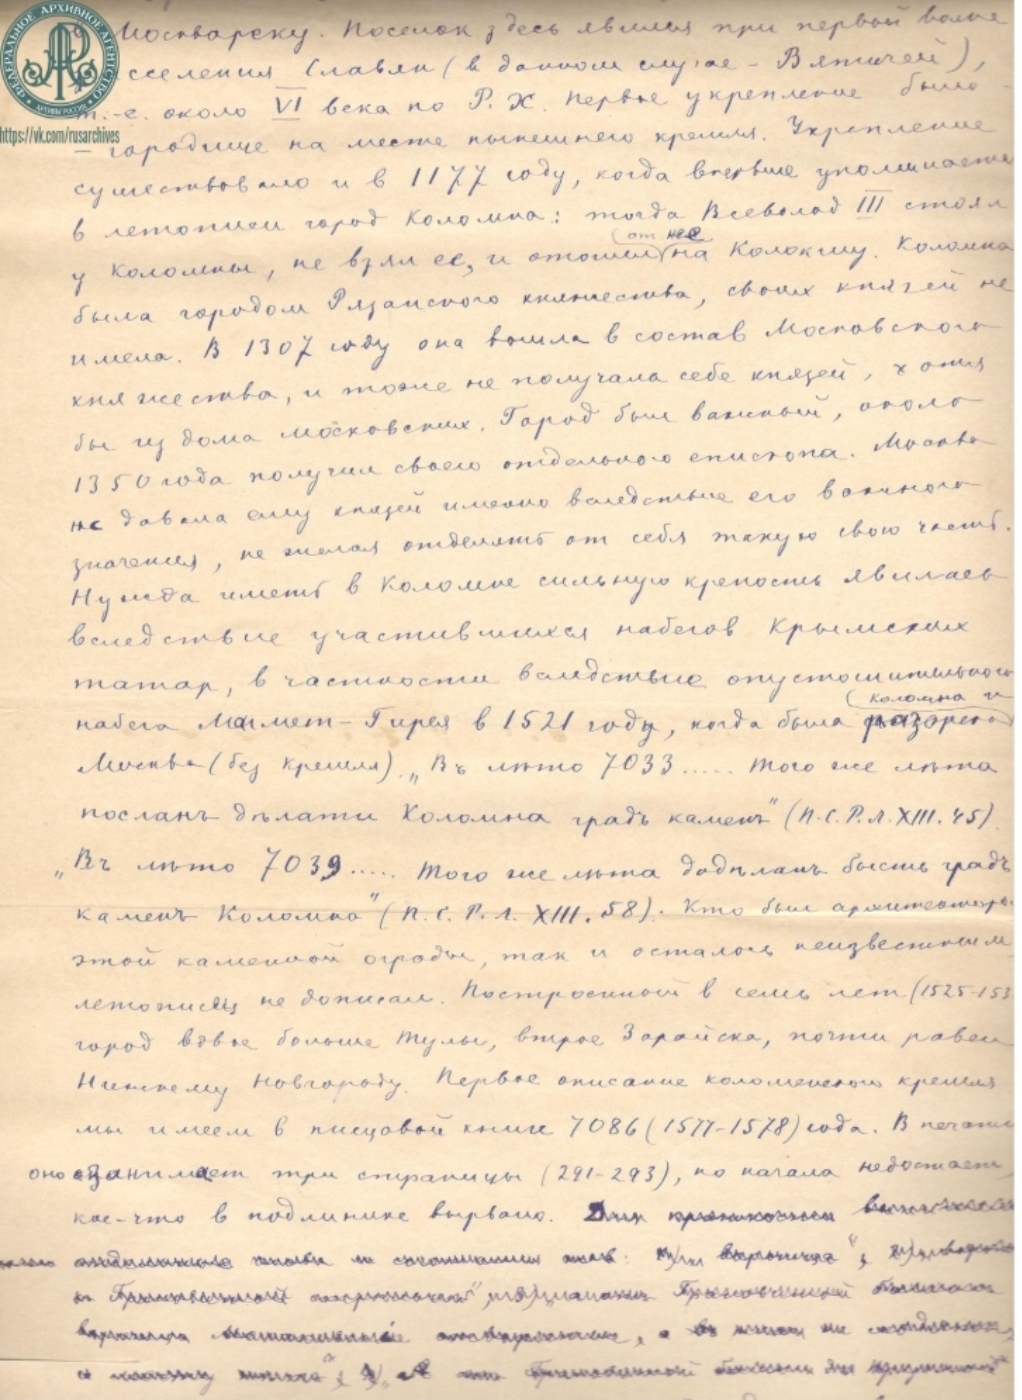 ФЕДЕРАЛЬНОЕ АРХИВНОЕ АГЕНТСТВО
АРХИВЫ РОССИИ
https://vk.com/rusarchives
Москварецку. Поселок здесь явился при первой волне
сселения Славян (в данном случае - Вятичей),
т.-е. около VI века по Р.Х. Первое укрепление было -
- городище на месте нынешнего кремля. Укрепление
существовало и в 1177 году, когда впервые упоминается
в летописи город Коломна: тогда Всеволод III стоял
у Коломны, не взял ее, и отошел (от нее) на Колокшу. Коломна
была городом Рязанского княжества, своих князей не
имела. В 1307 году она вошла в состав Московского
княжества, и тоже не получала себе князей, хотя
бы из дома московских. Город был важный, около
1350 года получил своего отдельного епископа. Москва
не давала ему князей именно вследствие его важного
значения, не желая отделять от себя такую свою часть.
Нужда иметь в Коломне сильную крепость явилась
вследствие участившихся набегов Крымских
татар, в частности вследствие опустошительного
(Коломна и
набега Магмет-Гирея в 1521 году, когда была разорена
Москва (без кремля). „Въ лѣто 7033..... того же лѣта
посланъ дѣлати Коломна градъ каменъ" (П.С.Р.Л. XIII. 45)
„Въ лѣто 7039..... того же лѣта додѣланъ бысть градъ
каменъ Коломна" (П.С.Р.Л. XIII. 58). Кто был архитектором
этой каменной ограды, так и осталось неизвестным
летописец не дописал. Построенный в семь лет (1525-153
город вдвое больше Тулы, втрое Зарайска, почти равен
Нижнему Новгороду. Первое описание коломенского кремля
мы имеем в писцовой книге 7086 (1577-1578) года. В печати
оно занимает три страницы (291-293), но начала недостает,
кое-что в подлинике вырвано.